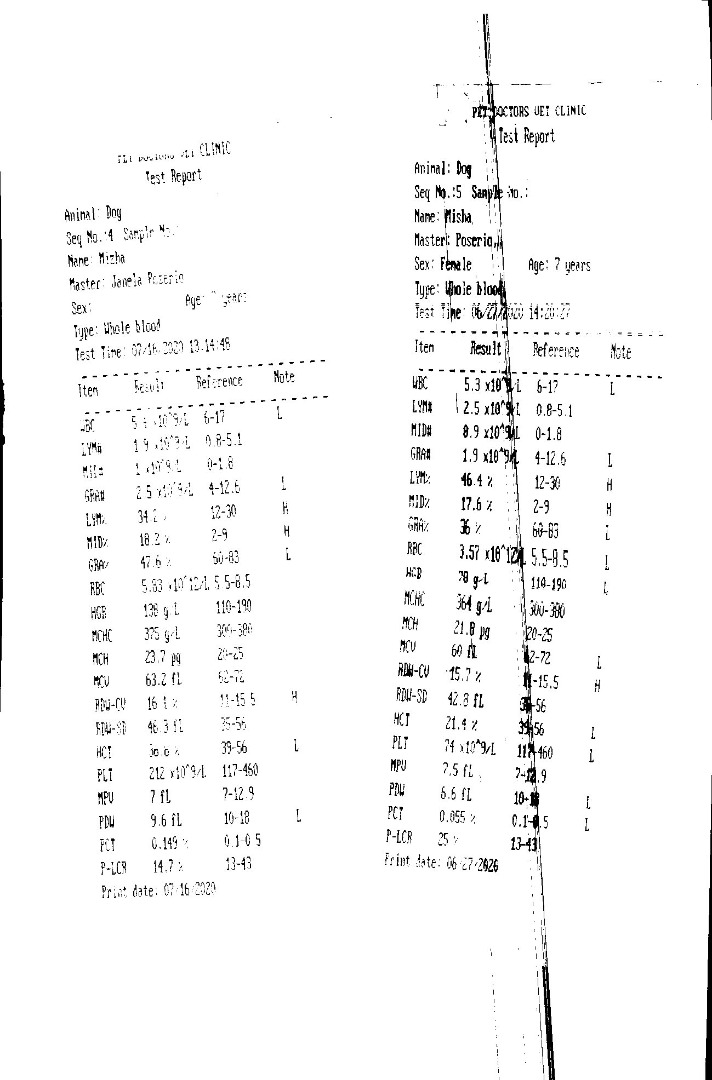 CLINIC
Test Report
Animal: Dog
Seq No.:4 Sample No.:
Name: Misha
Master: Janela Poserio
Sex: Age: years
Type: Whole blood
Test Time: 07/16/2020 13:14:48
Item Result Reference Note
WBC x10^9/L 6-17 L
LYM# 1.9 x10^9/L 0.8-5.1
MID# 1 x10^9/L 0-1.8
GRA# 2.5 x10^9/L 4-12.6 L
LYM% 34.2 % 12-30 H
MID% 18.2 % 2-9 H
GRA% 47.6 % 60-83 L
RBC 5.83 x10^12/L 5.5-8.5
HGB 138 g/L 110-190
MCHC 375 g/L 300-380
MCH 23.7 pg 20-25
MCV 63.2 fL 62-72
RDW-CV 16.1 % 11-15.5 H
RDW-SD 46.3 fL 35-56
HCT 36.8 % 39-56 L
PLT 212 x10^9/L 117-460
MPV 7 fL 7-12.9
PDW 9.6 fL 10-18 L
PCT 0.149 % 0.1-0.5
P-LCR 14.7 % 13-43
Print date: 07/16/2020
PET DOCTORS VET CLINIC
Test Report
Animal: Dog
Seq No.:5 Sample No.:
Name: Misha
Master: Poserio,
Sex: Female Age: 7 years
Type: Whole blood
Test Time: 06/27/2020 14:20:27
Item Result Reference Note
WBC 5.3 x10^9/L 6-17 L
LYM# 2.5 x10^9/L 0.8-5.1
MID# 8.9 x10^9/L 0-1.8
GRA# 1.9 x10^9/L 4-12.6 L
LYM% 46.4 % 12-30 H
MID% 17.6 % 2-9 H
GRA% 36 % 60-83 L
RBC 3.57 x10^12/L 5.5-8.5 L
HGB 78 g/L 110-190 L
MCHC 364 g/L 300-380
MCH 21.8 pg 20-25
MCV 60 fL 62-72 L
RDW-CV 15.7 % 11-15.5 H
RDW-SD 42.8 fL 35-56
HCT 21.4 % 39-56 L
PLT 74 x10^9/L 117-460 L
MPV 7.5 fL 7-12.9
PDW 6.6 fL 10-18 L
PCT 0.055 % 0.1-0.5 L
P-LCR 25 % 13-43
Print date: 06/27/2020